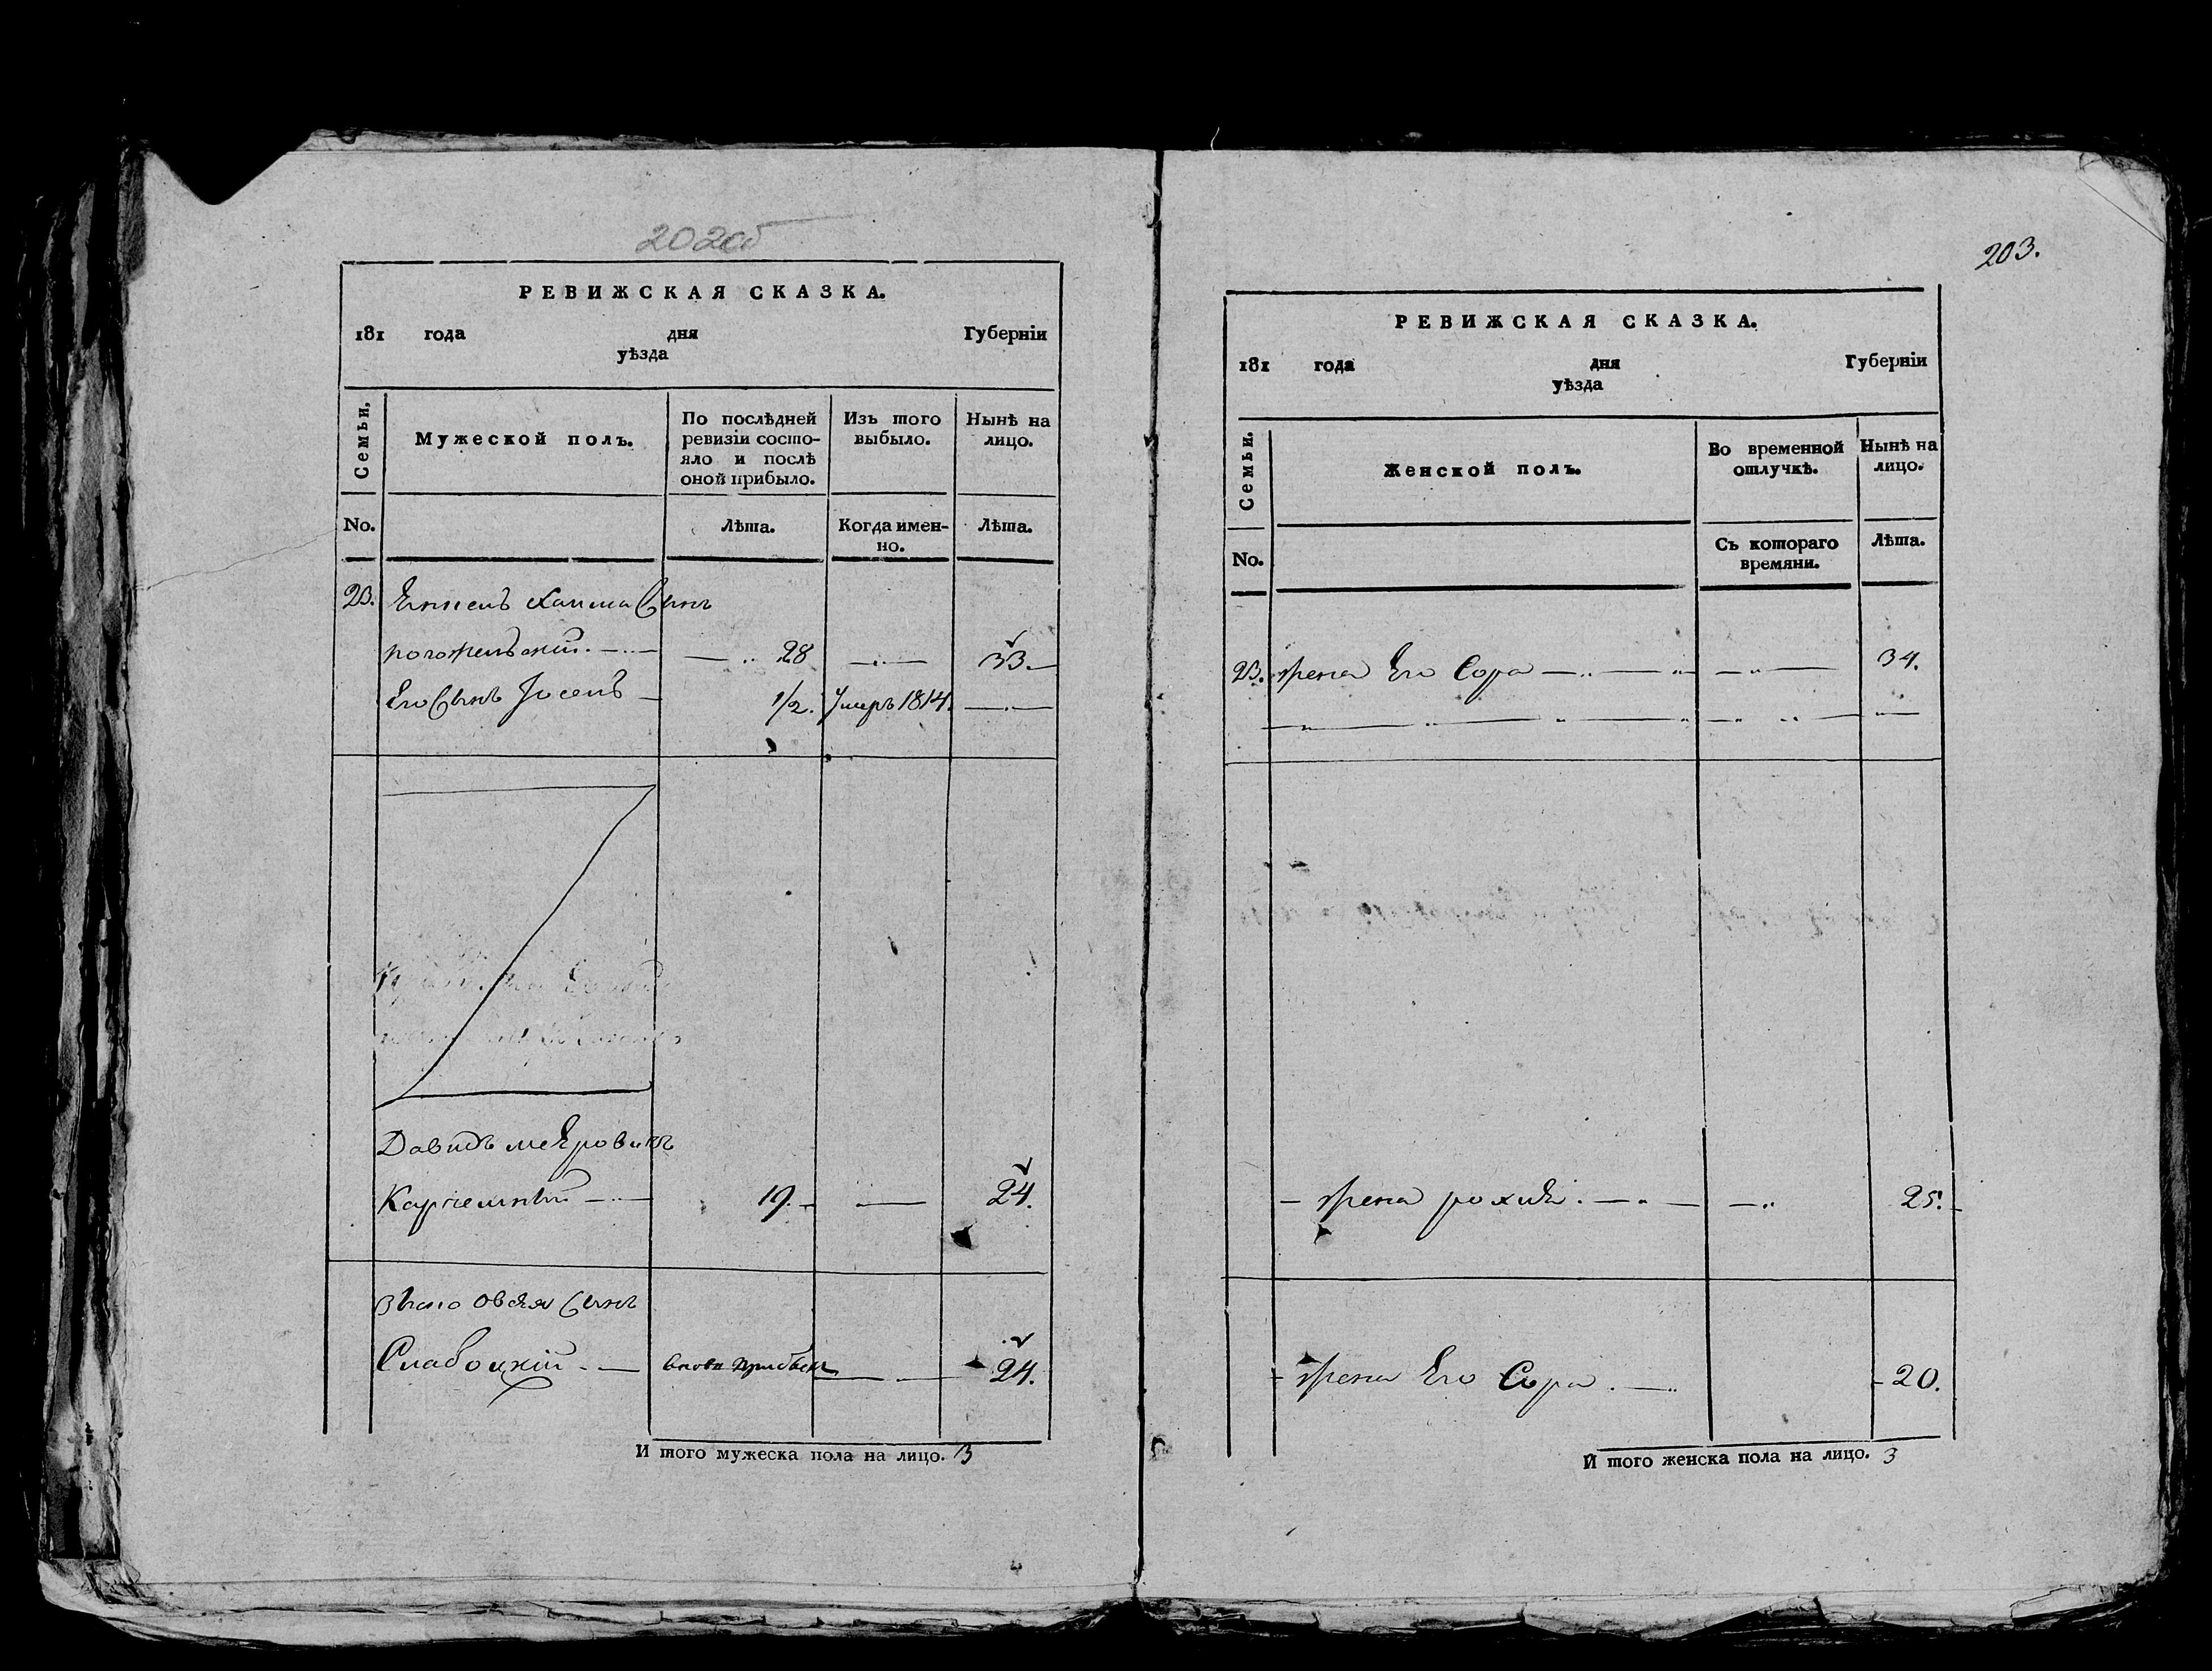 202об
РЕВИЖСКАЯ СКАЗКА.
181 года дня Губерніи
уѣзда
Семьи.
Мужеской полъ.
По послѣдней
ревизіи состо-
яло и послѣ
оной прибыло.
Изъ того
выбыло.
Нынѣ на
лицо.
No.
Лѣта.
Когда имен-
но.
Лѣта.
23. Хаима Сынъ
28 33.
Его Сынъ Іосель 1/2. Умеръ 1814.
Давидъ меЯровичъ
19. 24.
Овсея Сынъ
Слабоцкій вновь прибылъ 24.
И того мужеска пола на лицо. 3
203.
РЕВИЖСКАЯ СКАЗКА.
181 года дня Губерніи
уѣзда
Семьи.
Женской полъ.
Во временной
отлучкѣ.
Нынѣ на
лицо.
No.
Съ котораго
времяни.
Лѣта.
23. жена Его Сора 34.
жена 25.
жена Его Сора 20.
И того женска пола на лицо. 3